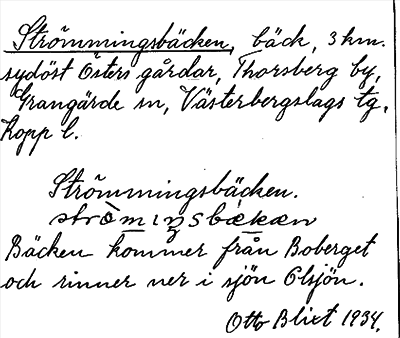 Strömmingsbäcken, bäck, 3 km.
sydöst Östers gårdar, Thorsberg by,
Grangärde sn, Västerbergslags tg,
Kopp l.
Strömmingsbäcken.
strömıŋsbækæn
Bäcken kommer från Boberget
och rinner ner i sjön Olsjön.
Otto Blixt 1934.